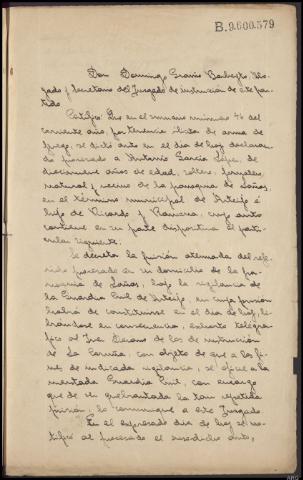 B.9.600.579
Don Domingo
gado y Secretario del Juzgado de instrucción de este par-
tido
Certifico: Que en el sumario número 46 del
corriente año, por tenencia ilícita de arma de
fuego, se dictó auto en el día de hoy declaran-
do procesado a Antonio García de
diecinueve años de edad, soltero, jornalero,
natural y vecino de la parroquia de Loñas,
en el término municipal de Arteijo e
hijo de Ricardo y Ramona, cuyo auto
contiene en su parte dispositiva el parti-
cular siguiente.
Se decreta la prisión atenuada del refe-
rido procesado en su domicilio de la pa-
rroquia de Loñas, bajo la vigilancia de
la Guardia Civil de Arteijo, en cuya prisión
habrá de constituirse en el día de hoy, li-
brándose en consecuencia, exhorto telegrá-
fico al Juez Decano de los de instrucción
de La Coruña, con objeto de que a los fi-
nes de indicada vigilancia, se oficie a la
mentada Guardia Civil, con encargo
que de si quebrantada la tan repetida
prisión, lo comunique a este Juzgado.
En el expresado día de hoy se no-
tificó al procesado el susodicho auto,